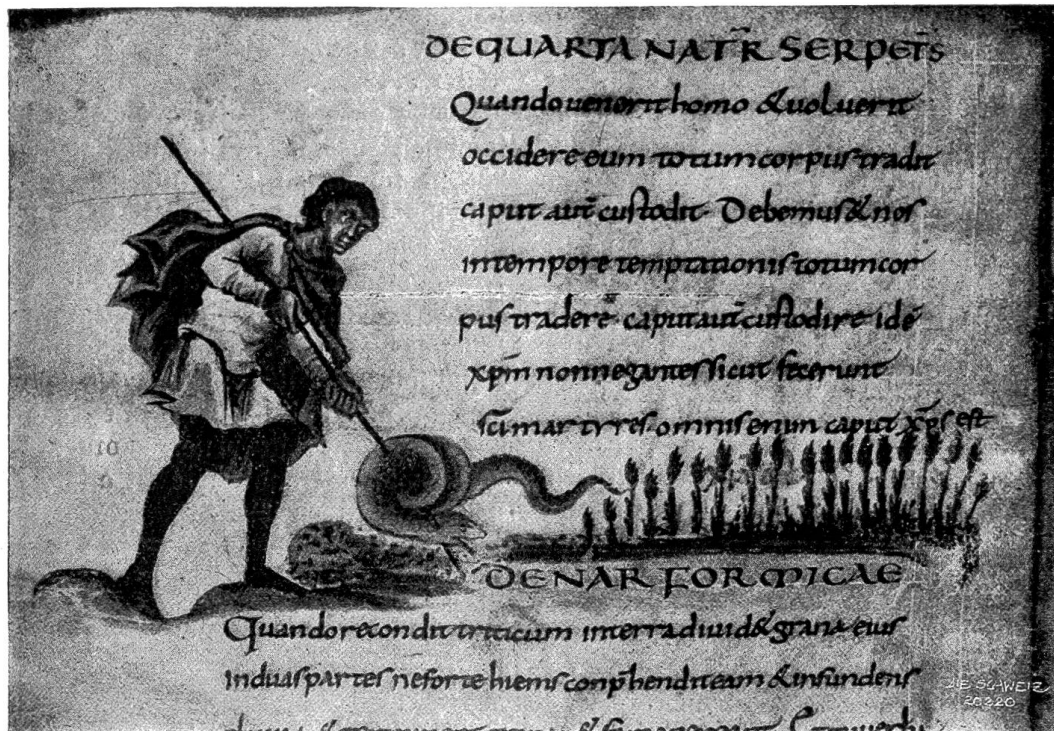 DE QUARTA NAT̄R SERPET̄S
Quando venerit homo & voluerit
occidere eum totum corpus tradit
caput aut̄ custodit. Debemus & nos
in tempore temptationis totum cor
pus tradere caput aut̄ custodire id ē
xp̄m non negantes sicut fecerunt
sc̄i martyres. omnis enim caput xp̄s est
DE NAR FORMICAE
Quando recondit triticum in terra divid& grana eius
in duas partes ne forte hiems conp̄hendit eam & infundens
DIE SCHWEIZ
20320